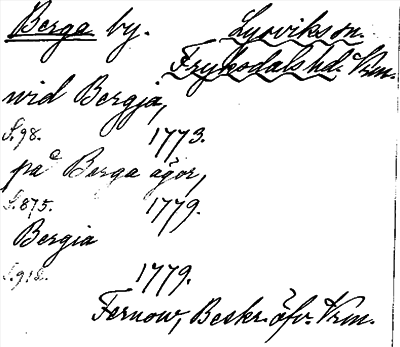 Berga by. Lysviks sn.
Fryksdals hd. Vrm.
wid Bergja,
S. 98. 1773.
på Berga ägor,
S. 875. 1779.
Bergia
S. 918. 1779.
Fernow, Beskr. öfv. Vrm.